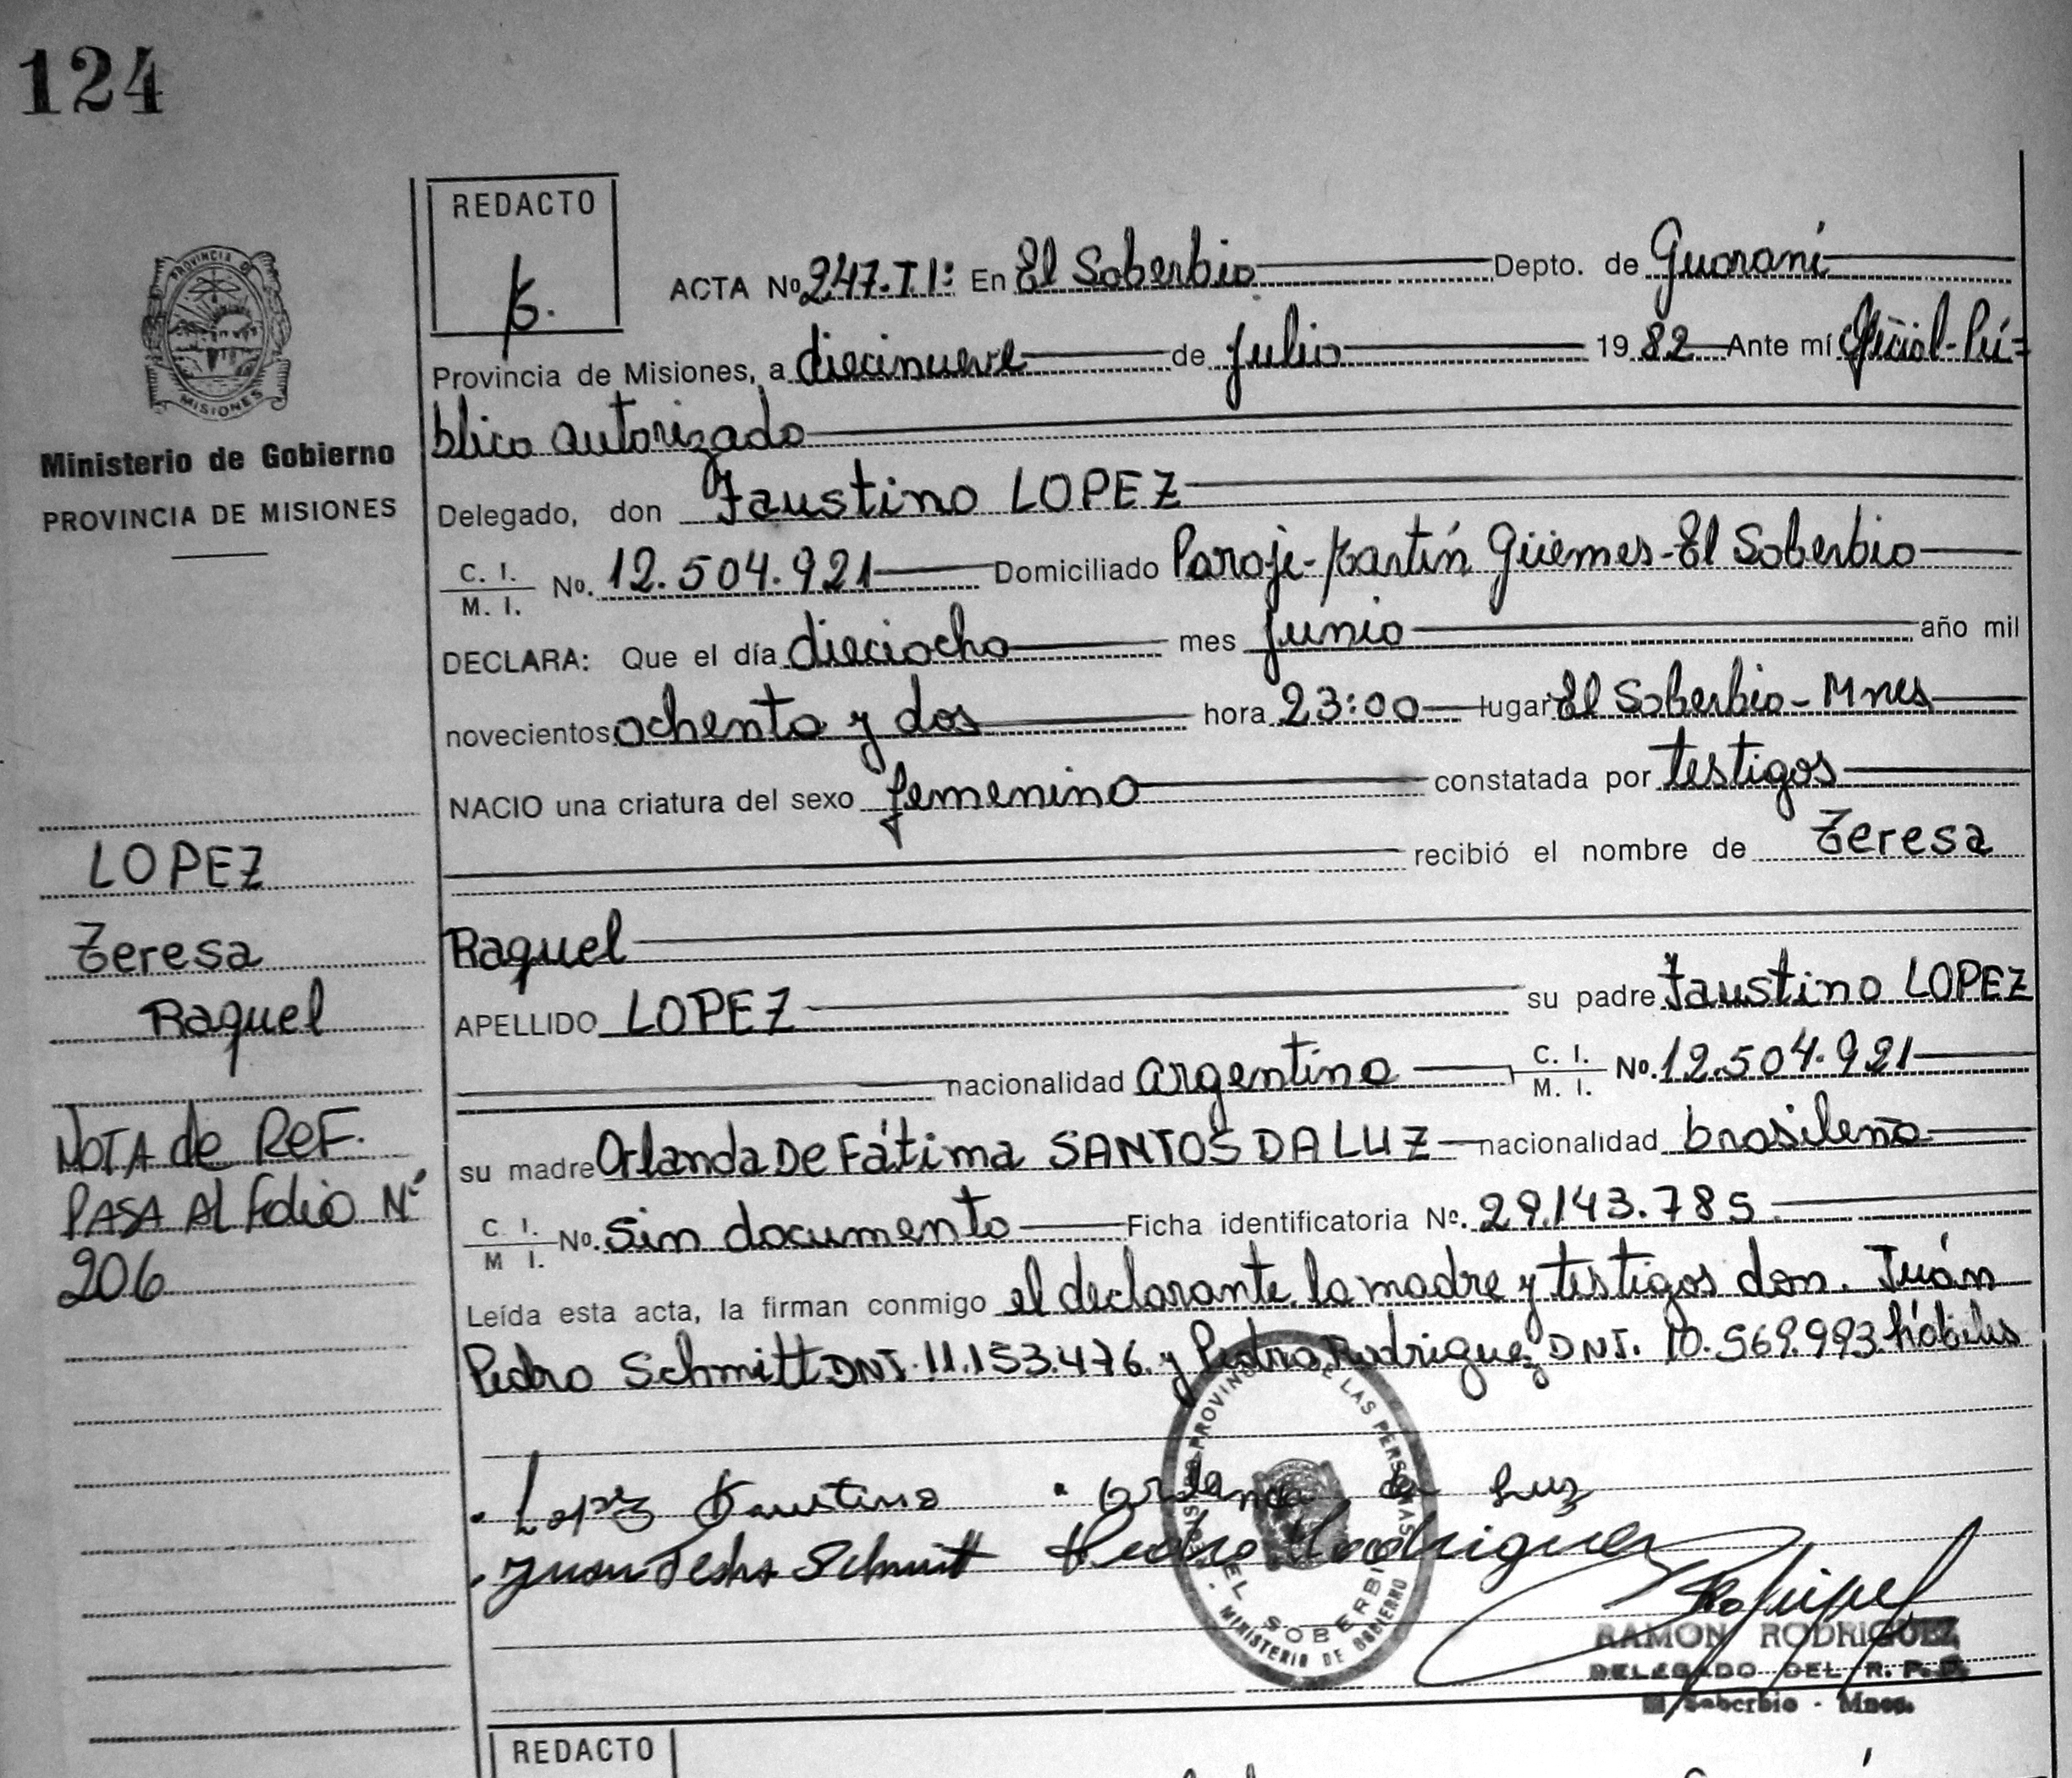 124
REDACTO
PROVINCIA DE
MISIONES
Ministerio de Gobierno
PROVINCIA DE MISIONES
LOPEZ
Teresa
Raquel
NOTA de REF.
PASA Al Folio Nº
206
ACTA Nº 247.T I: En El Soberbio Depto. de Guaraní
Provincia de Misiones, a diecinueve de Julio 1982 Ante mí Oficial-Pú-
blico autorizado
Delegado, don Faustino LOPEZ
C. I.
M. I. Nº. 12.504.921 Domiciliado Paraje-Martín Güemes-El Soberbio
DECLARA: Que el día dieciocho mes Junio año mil
novecientos ochenta y dos hora 23:00 lugar El Soberbio-Mnes
NACIO una criatura del sexo femenino constatada por testigos
recibió el nombre de Teresa
Raquel
APELLIDO LOPEZ su padre Faustino LOPEZ
nacionalidad argentina C. I.
M. I. Nº. 12.504.921
su madre Orlanda De Fátima SANTOS DA LUZ nacionalidad brasileña
C. I.
M I. Nº. Sin documento Ficha identificatoria Nº. 29.143.785
Leída esta acta, la firman conmigo el declarante, la madre y testigos don. Juán
Pedro Schmitt DNI. 11.153.476 y Pedro Rodriguez DNI. 10.569.993 hábiles
Lopez Faustino Orlanda da Luz
Juan Pedro Schmitt Pedro Rodriguez
PROVIN DE LAS PERSONAS
EL SOBERBIO
MINISTERIO DE GOBIERNO
RAMON RODRIGUEZ
DELEGADO DEL R. P. P.
El Soberbio - Mnes.
REDACTO